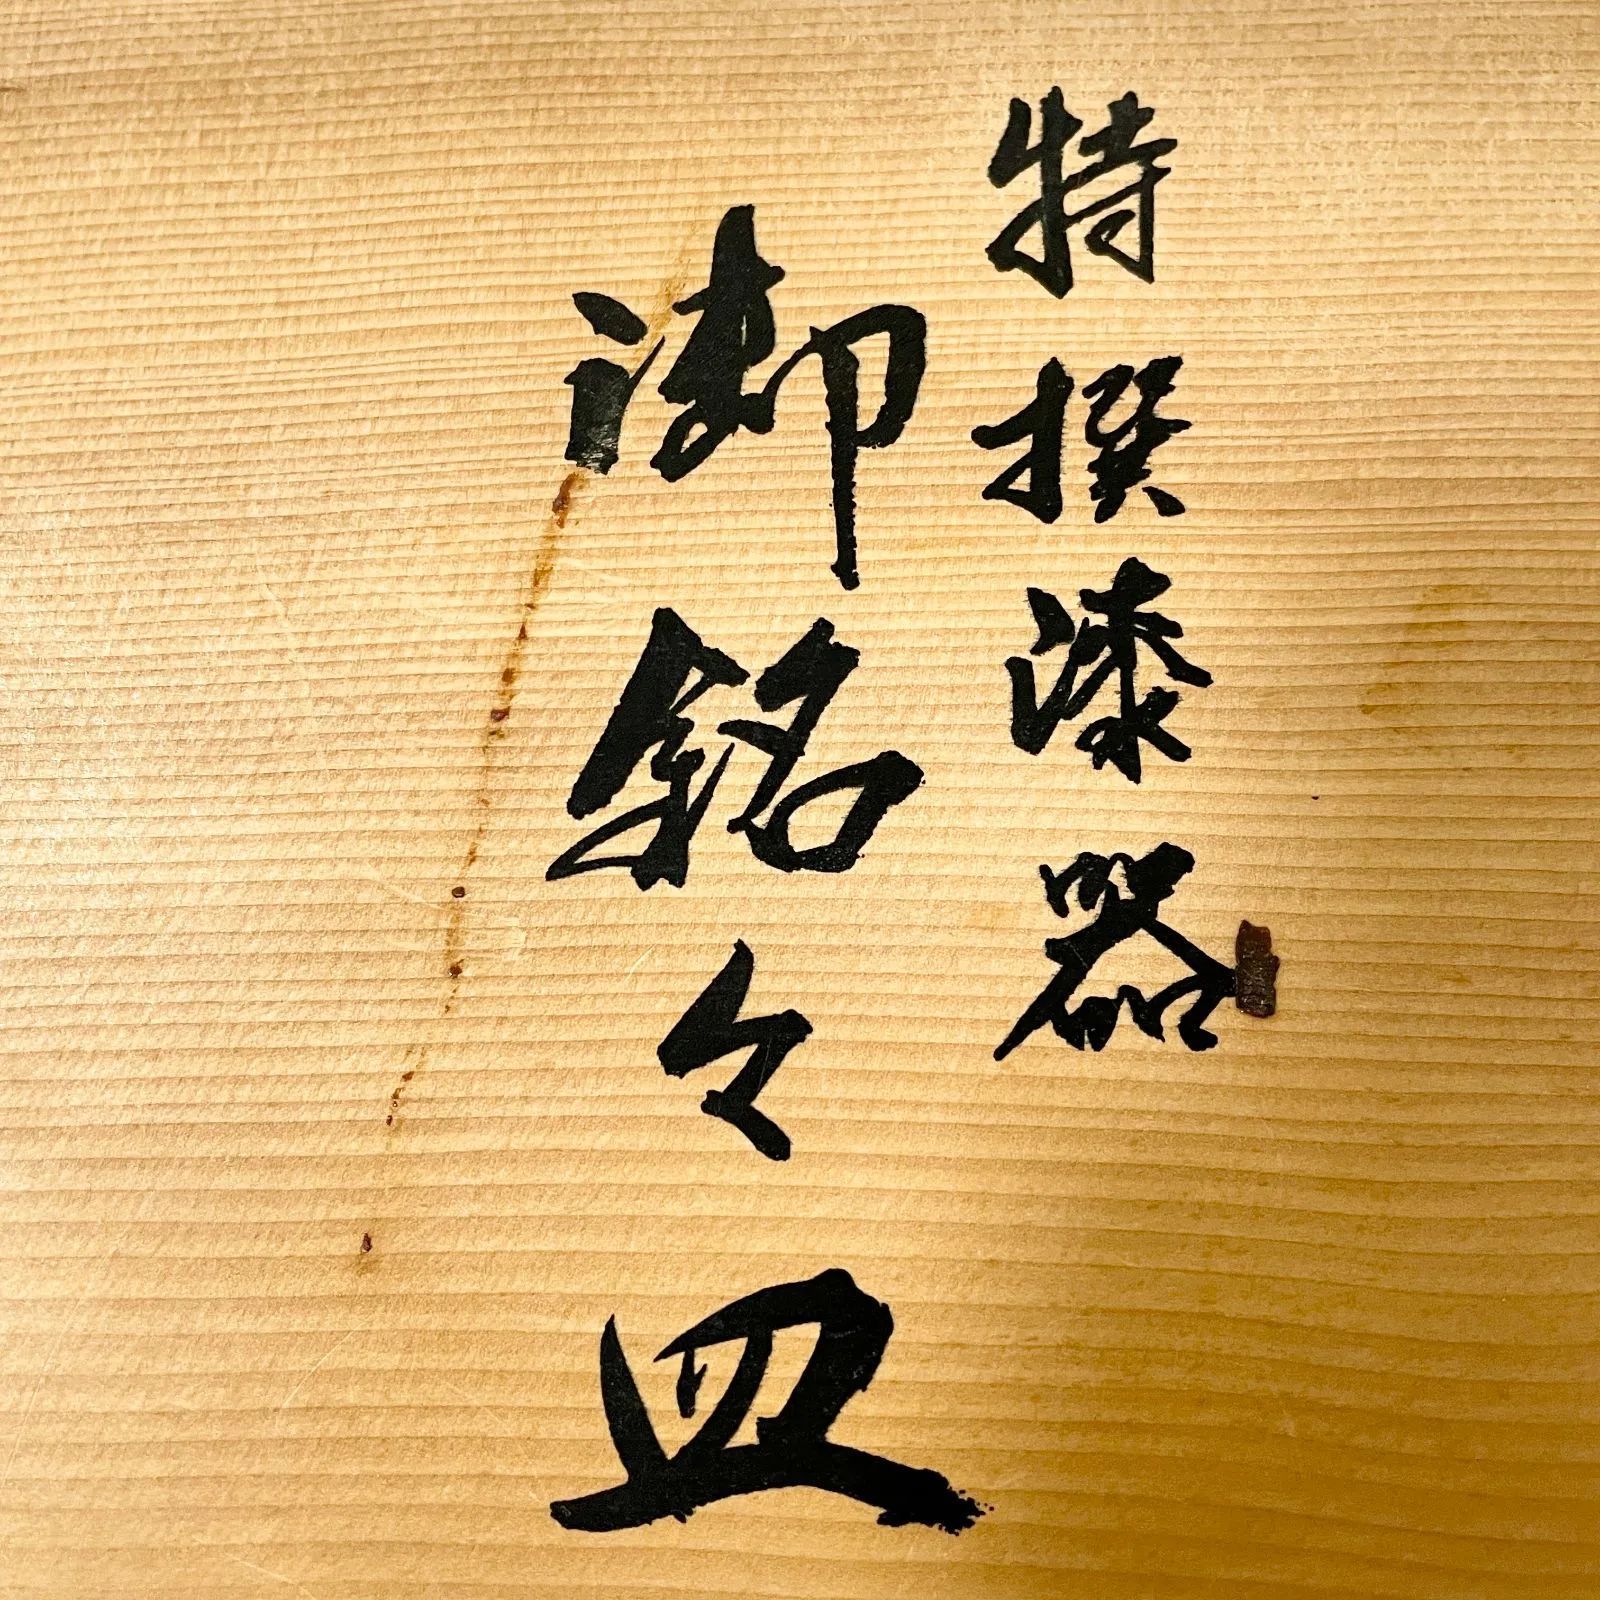 特撰漆器
御銘々皿